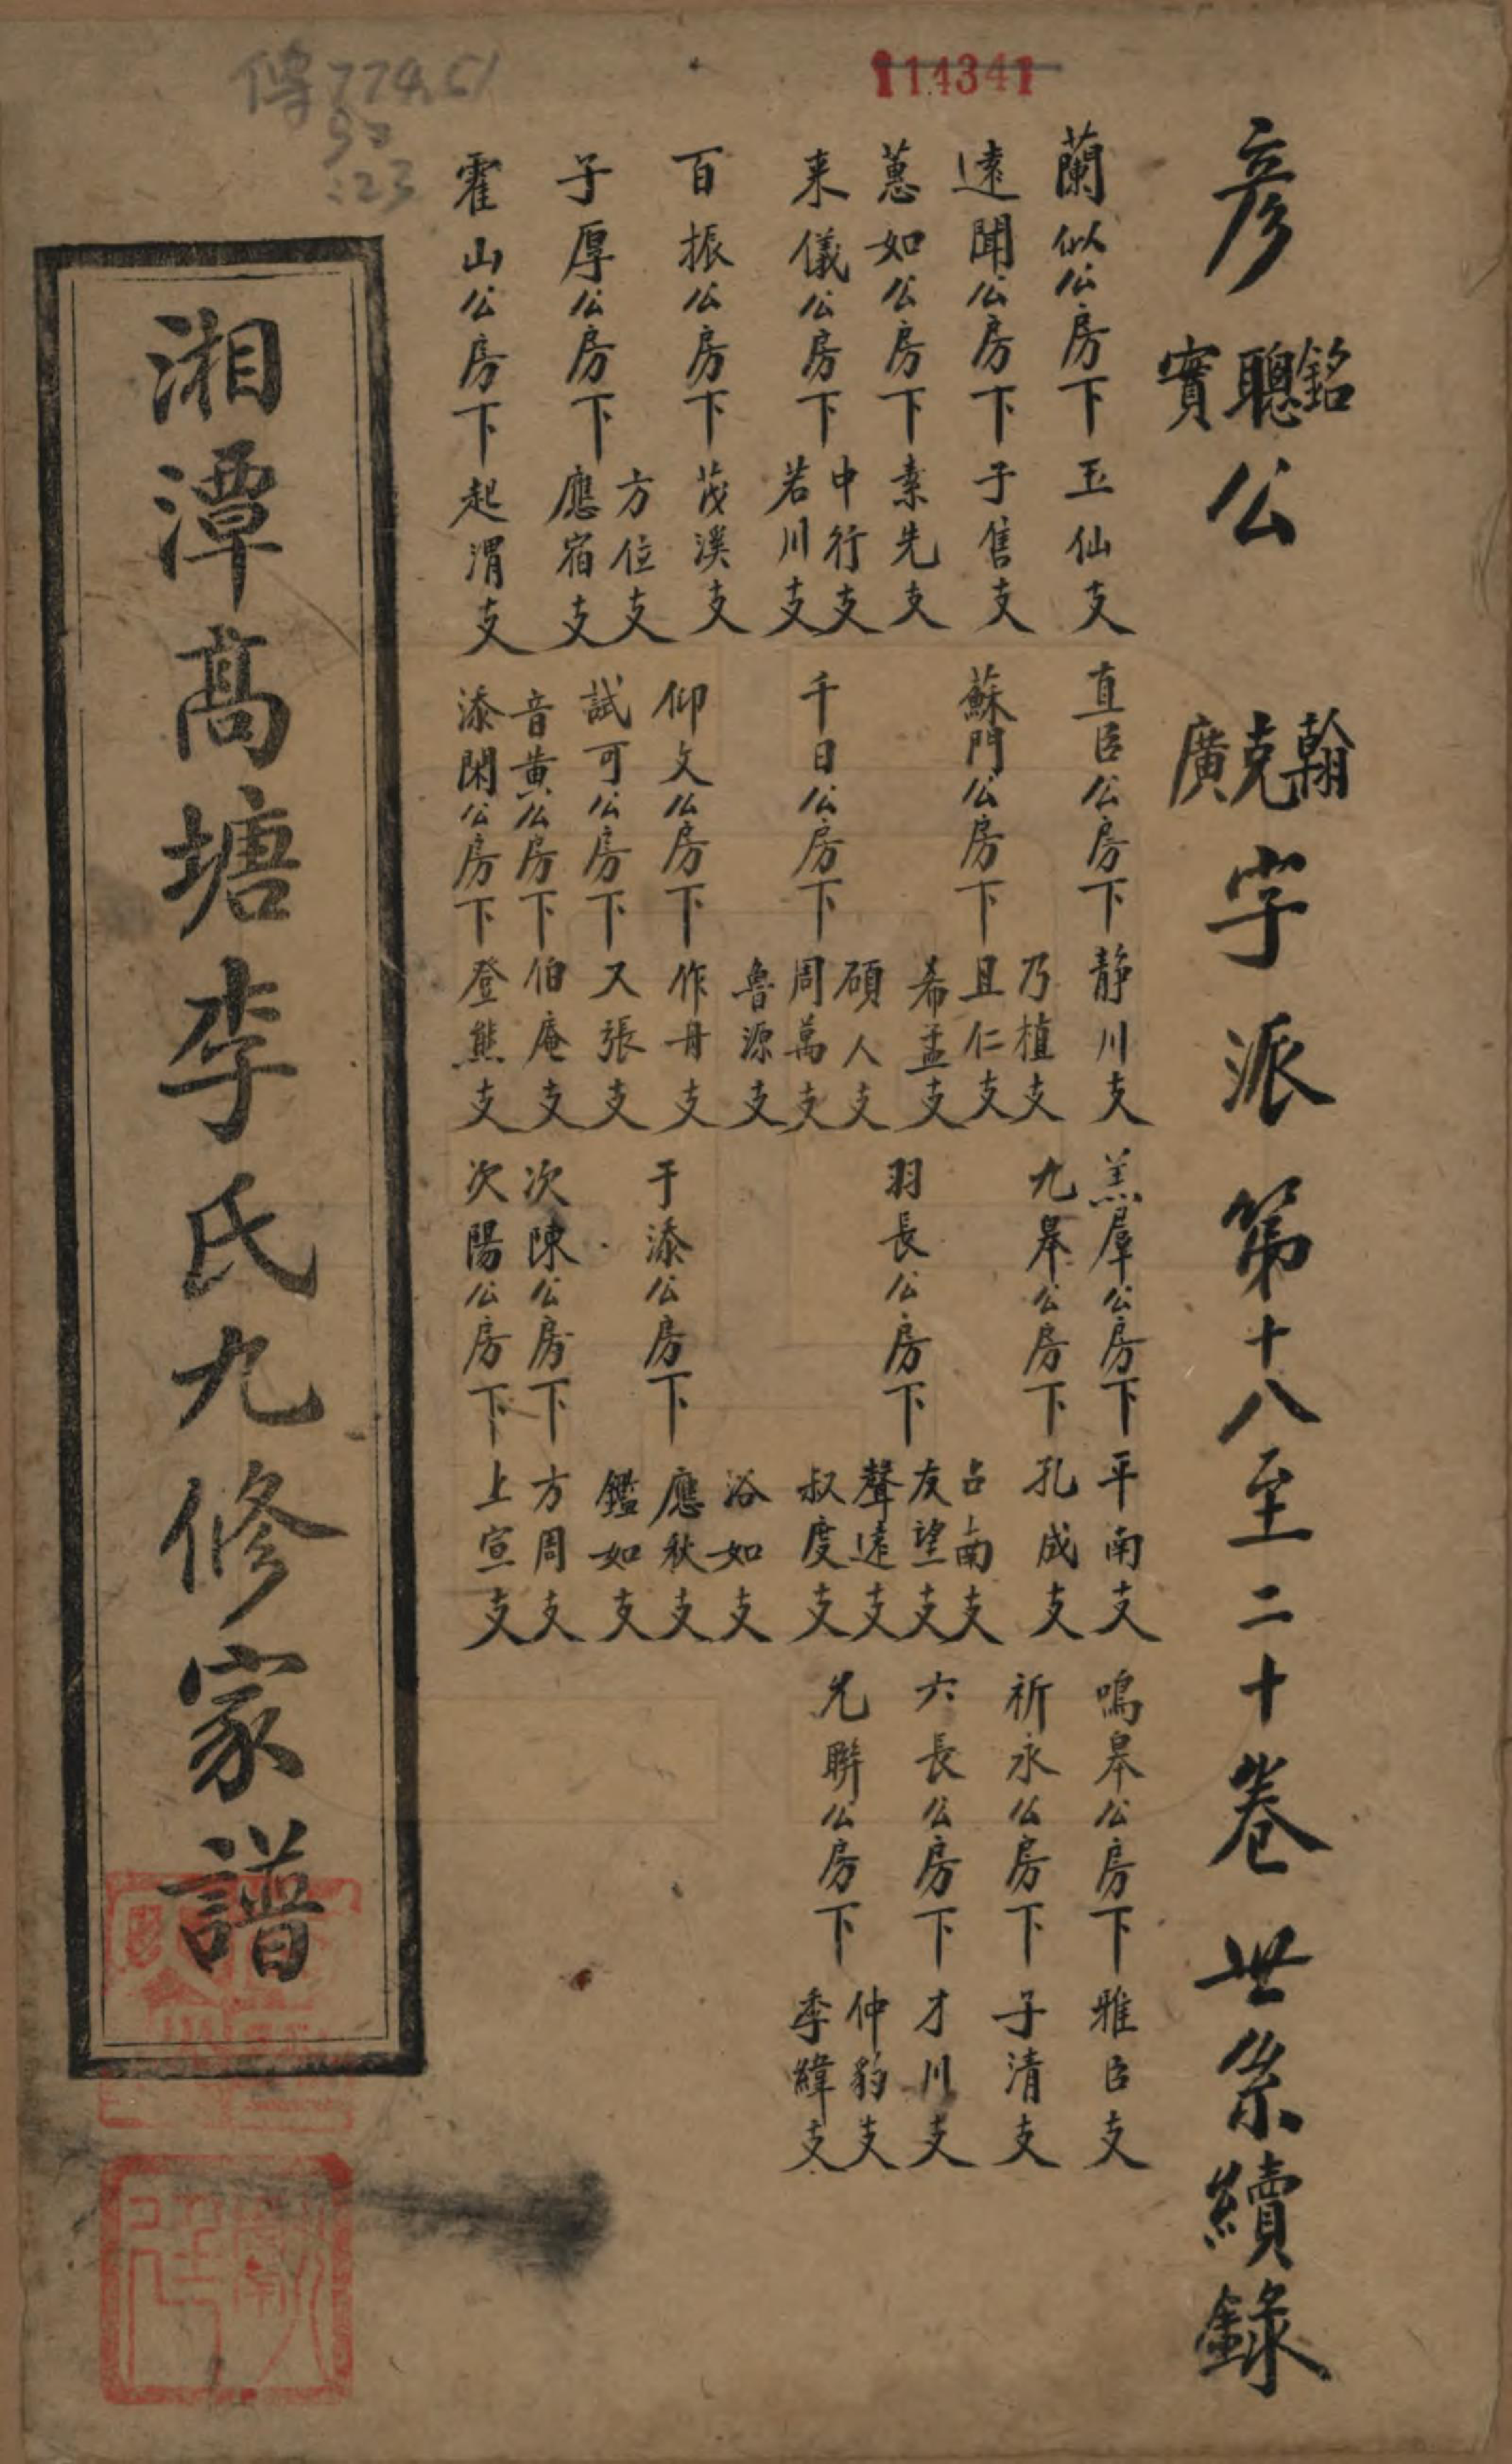 114341
傳 774.51
:23
彥 銘聰實 公 翰克廣 字派 第十八至二十卷 世系續錄
蘭似公房下 玉仙支
遠聞公房下 子售支
蕙如公房下 素先支
来儀公房下 中行支 若川支
百振公房下 茂溪支
子厚公房下 方位支 應宿支
霍山公房下 起渭支
直臣公房下 靜川支
蘇門公房下 乃植支 且仁支 希孟支
千日公房下 碩人支 周萬支 魯源支
仰文公房下 作舟支
試可公房下 又張支
音黄公房下 伯庵支
添閑公房下 登熊支
羔羣公房下 平南支
九皋公房下 孔成支
羽長公房下 占南支 友望支 聲遠支 叔度支
于添公房下 浴如支 應秋支 鑑如支
次陳公房下 方周支
次陽公房下 上宣支
鳴皋公房下 雅臣支
祈永公房下 子清支
六長公房下 才川支
兄聨公房下 仲豹支 季緯支
湘潭高塘李氏九修家譜